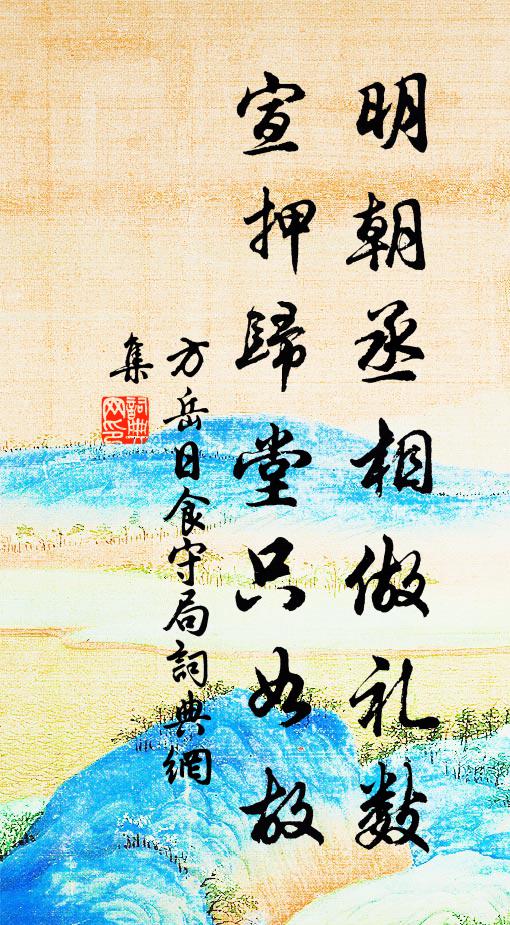 明朝丞相做礼数
宣押歸堂只如故
方岳日食守局詞典網
集
詞典网印